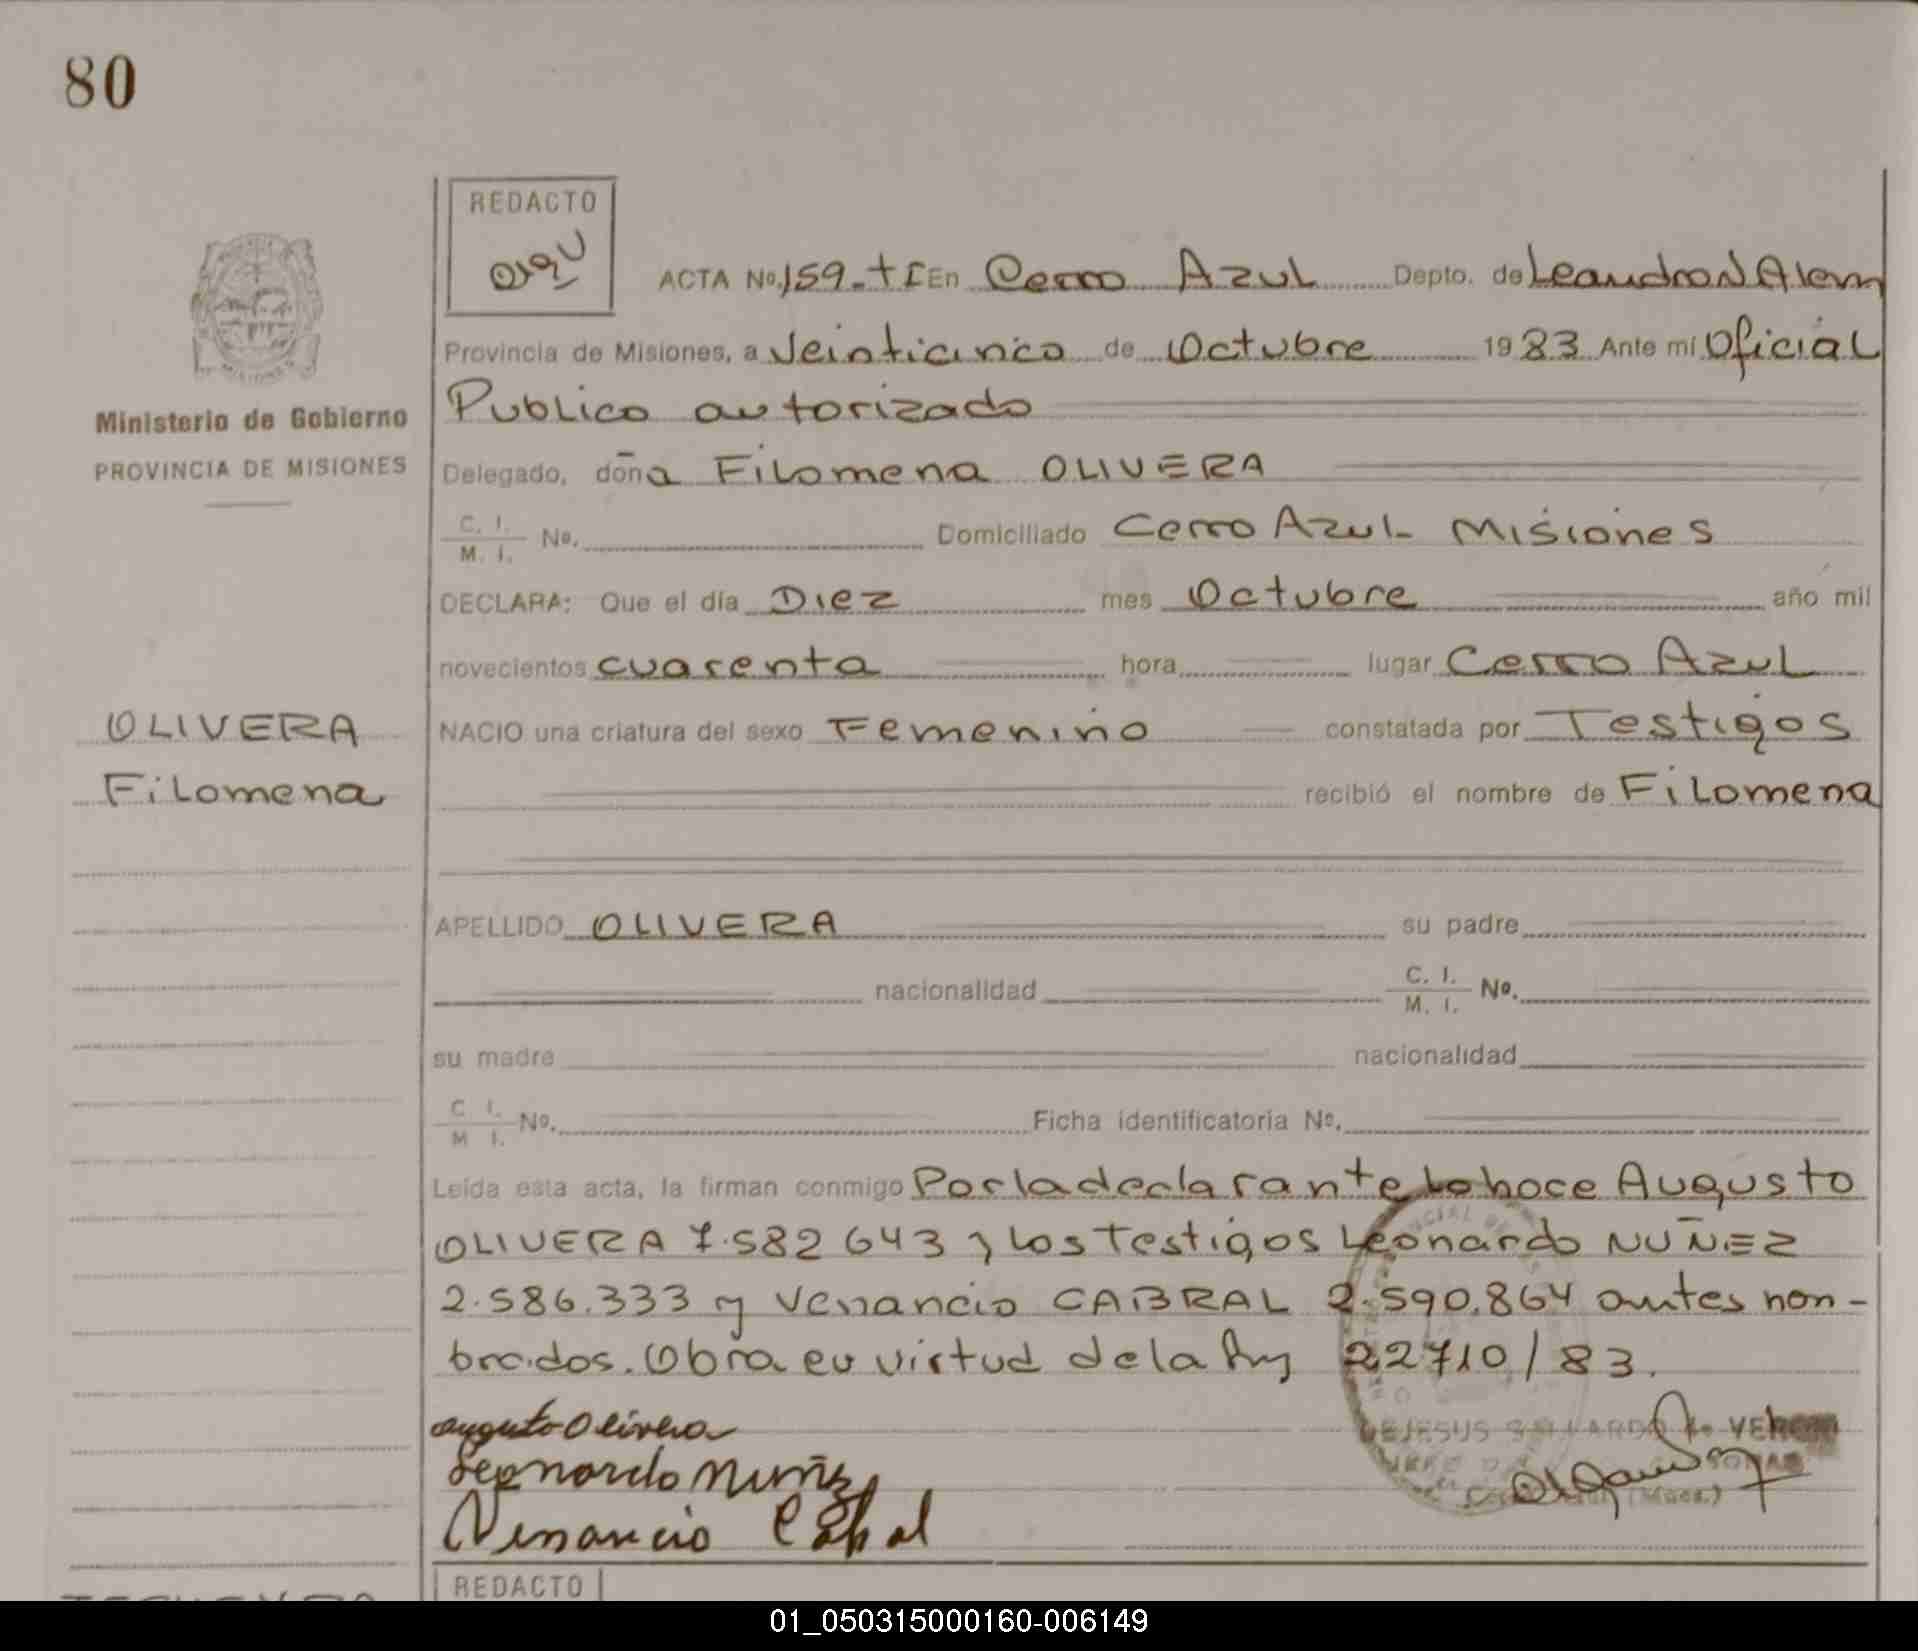 80
REDACTO
ACTA No. 159.- t I En Cerro Azul Depto. de Leandro N Alem
Provincia de Misiones, a Veinticinco de Octubre 1983 Ante mí Oficial
Publico autorizado
Ministerio de Gobierno
PROVINCIA DE MISIONES
Delegado, doña Filomena OLIVERA
C. I.
M. I. No. Domiciliado Cerro Azul - Misiones
DECLARA: Que el día Diez mes Octubre año mil
novecientos cuarenta hora lugar Cerro Azul
OLIVERA
Filomena
NACIO una criatura del sexo Femenino constatada por Testigos
recibió el nombre de Filomena
APELLIDO OLIVERA su padre
nacionalidad C. I.
M. I. No.
su madre nacionalidad
C I.
M I. No. Ficha identificatoria No.
Leída esta acta, la firman conmigo Por la declarante lo hace Augusto
OLIVERA 7.582 643 y los Testigos Leonardo NUÑEZ
2.586.333 y Venancio CABRAL 2.590.864 antes non-
brados. Obra en virtud de la ley 22710/83.
augusto Olivera
Leonardo Nuñez
Venancio Cabral
REDACTO
01_050315000160-006149